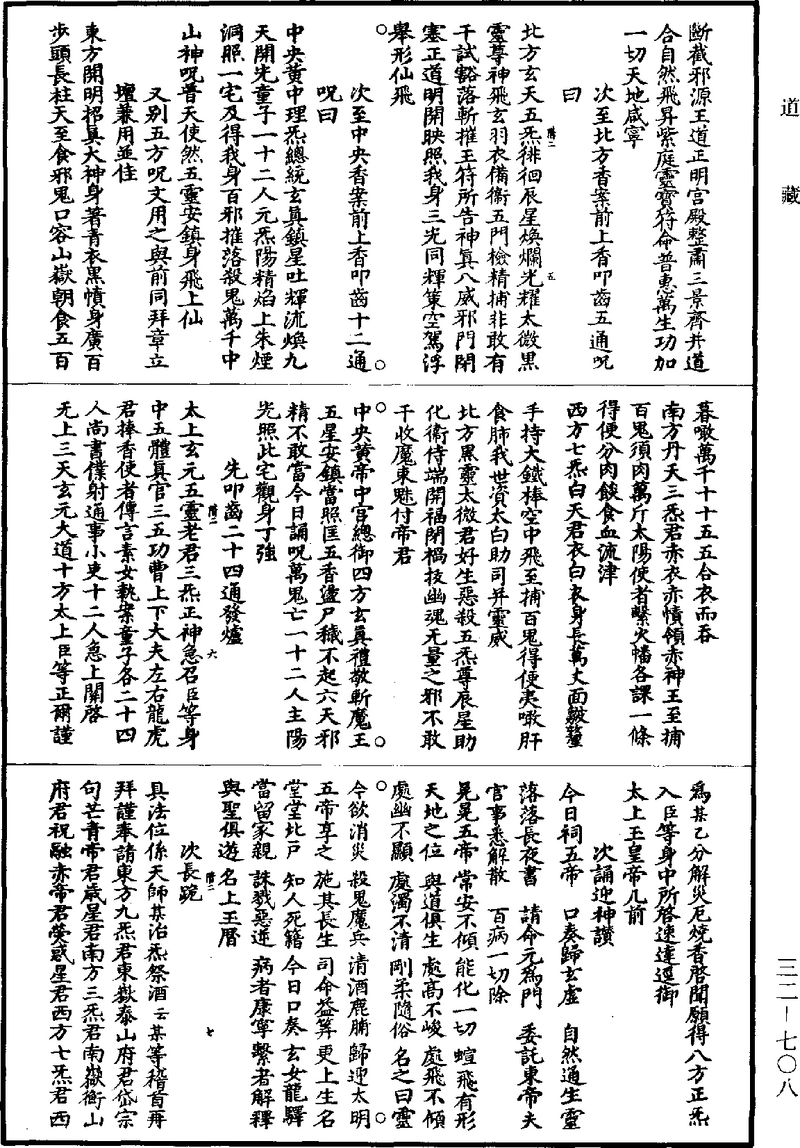 道藏
斷截邪源王道正明宮殿整肅三景齊并道
合自然飛昇紫庭靈寶符命普惠萬生功加
一切天地咸寧
次至北方香案前上香叩齒五通呪
曰
北方玄天五炁徘徊辰星煥爛光耀太微黑
靈尊神飛玄羽衣備衞五門檢精捕非敢有
干試豁落斬摧王符所告神真八威邪門閉
塞正道明開映照我身三光同輝策空駕浮
舉形仙飛
次至中央香案前上香叩齒十二通
呪曰
中央黃中理炁總統玄真鎮星吐輝流煥九
天開光童子一十二人元炁陽精焰上朱煙
洞照一宅及得我身百邪摧落殺鬼萬千中
山神呪普天使然五靈安鎮身飛上仙
又別五方呪文用之與前同拜章立
壇兼用並佳
東方開明祁真大神身著青衣黑幘身廣百
步頭長柱天至食邪鬼口容山嶽朝食五百
暮噉萬千十十五五合衣而吞
南方丹天三炁君赤衣赤幘領赤神王至捕
百鬼須肉萬斤太陽使者繫火幡各課一條
得便分肉餤食血流津
西方七炁白天君衣白衣身長萬丈面皺螯
手持大鐵棒空中飛至捕百鬼得便夷噉肝
食肺我世資太白助司并靈威
北方黑靈太微君好生惡殺五炁尊辰星助
化衞侍端開福閉禍技幽魂无量之邪不敢
干收魔束魅付帝君
中央黃帝中宮總御四方玄真禮敬斬魔王
五星安鎮當照匡五香盪尸穢不起六天邪
精不敢當今日誦呪萬鬼亡一十二人主陽
光照此宅觀身丁強
先叩齒二十四通發爐
太上玄元五靈老君三炁正神急召臣等身
中五體真官三五功曹上下大夫左右龍虎
君捧香使者傳言素女執案童子各二十四
人尚書僕射通事小吏十二人急上關啓
无上三天玄元大道十方太上臣等正爾謹
爲某乙分解災厄燒香啓聞願得八方正炁
入臣等身中所啓速達逕御
太上王皇帝几前
次誦迎神讚
今日祠五帝　口奏歸玄虛　自然通生靈
落落長夜書　請命元爲門　委託東帝夫
官事悉解散　百病一切除
晃晃五帝　常安不傾　能化一切　蝖飛有形
天地之位　與道俱生　處高不峻　處飛不傾
處幽不顯　處濁不清　剛柔隨俗　名之曰靈
今欲消災　殺鬼魔兵　清酒鹿脯　歸迎太明
五帝享之　施其長生　司命益筭　更上生名
堂堂北戶　知人死籍　今日口奏　玄女龍驛
當留家親　誅戮惡逆　病者康寧　繫者解釋
與聖俱遊　名上王曆
次長跪
具法位係天師某治炁祭酒云某等稽首再
拜謹奉請東方九炁君東嶽泰山府君岱宗
句芒青帝君歲星君南方三炁君南嶽衡山
府君祝融赤帝君熒惑星君西方七炁君西
三二—七〇八